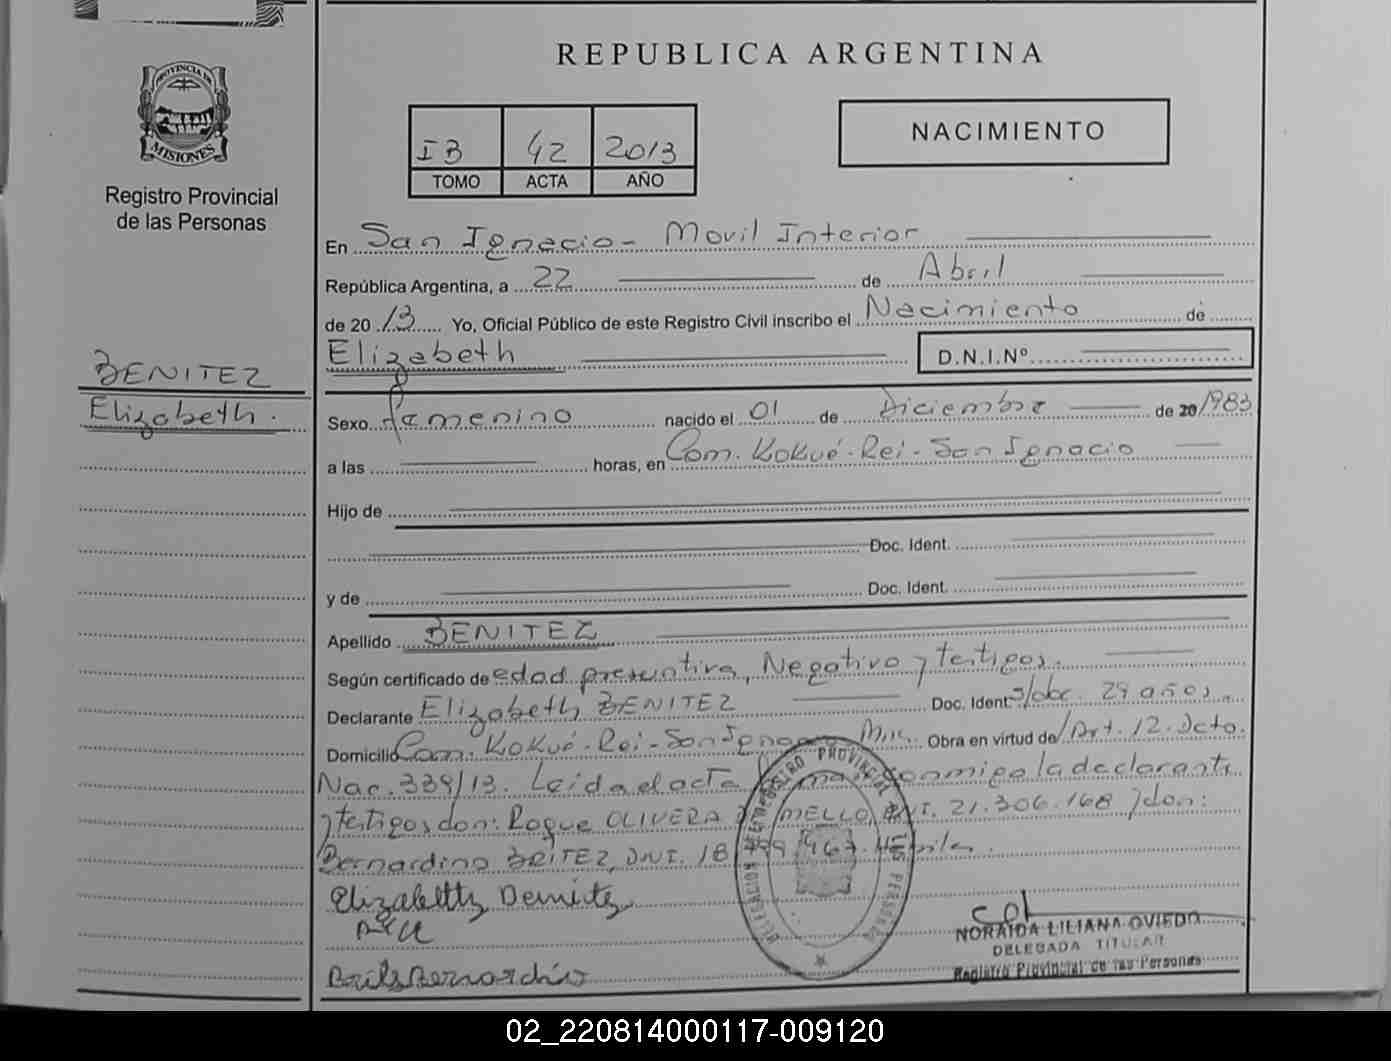 PROVINCIA DE
MISIONES
Registro Provincial
de las Personas
BENITEZ
Elizabeth.
REPUBLICA ARGENTINA
IB 42 2013
TOMO ACTA AÑO
NACIMIENTO
En San Ignacio - Movil Interior
República Argentina, a 22 de Abril
de 20 13 Yo, Oficial Público de este Registro Civil inscribo el Nacimiento de
Elizabeth D.N.I.Nº
Sexo femenino nacido el 01 de Diciembre de 20 1983
a las horas, en Com. Kokué-Rei-San Ignacio
Hijo de
Doc. Ident.
y de Doc. Ident.
Apellido BENITEZ
Según certificado de edad presuntiva, Negativo y testigos.
Declarante Elizabeth BENITEZ Doc. Ident. s/doc. 29 años
Domicilio Com. Kokué-Rei-San Ignacio Mnes. Obra en virtud de Art. 12. Dcto.
Nac. 339/13. Leida el acta firma conmigo la declarante
y testigos don: Roque OLIVERA MELLO, DNI. 21.306.168 y don:
Bernardino BRITEZ, DNI. 18
Elizabeth Benitez
NORAIDA LILIANA OVIEDO
DELEGADA TITULAR
Registro Provincial de las Personas
02_220814000117-009120